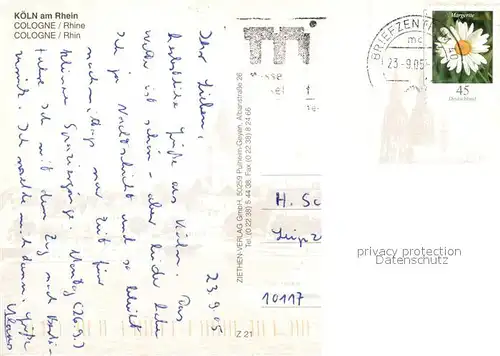 KÖLN am Rhein
COLOGNE / Rhine
COLOGNE / Rhin
23.9.05
Ihr Lieben,
herbstliche Grüße aus Köln. Das
Wetter ist schön - aber leider habe
ich ja Nachtschicht und so bleibt
nachmittags nur Zeit für
kleinere Spaziergänge. Montag (26.9.)
fahre ich mit dem Zug nach
zurück. Ich melde mich dann. Grüße
Klaus
ZIETHEN-VERLAG GmbH, 50259 Pulheim-Geyen, Albanstraße 26
Tel. (0 22 38) 5 44 38 Fax (0 22 38) 8 24 66
Z 21
BRIEFZENTR
mc
23.-9.05
Margerite
45
Deutschland
H. Sc
Leipz
10117
privacy protection
Datenschutz